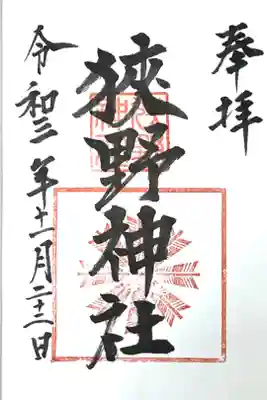 奉拝
狭野神社
令和二年十一月二十二日